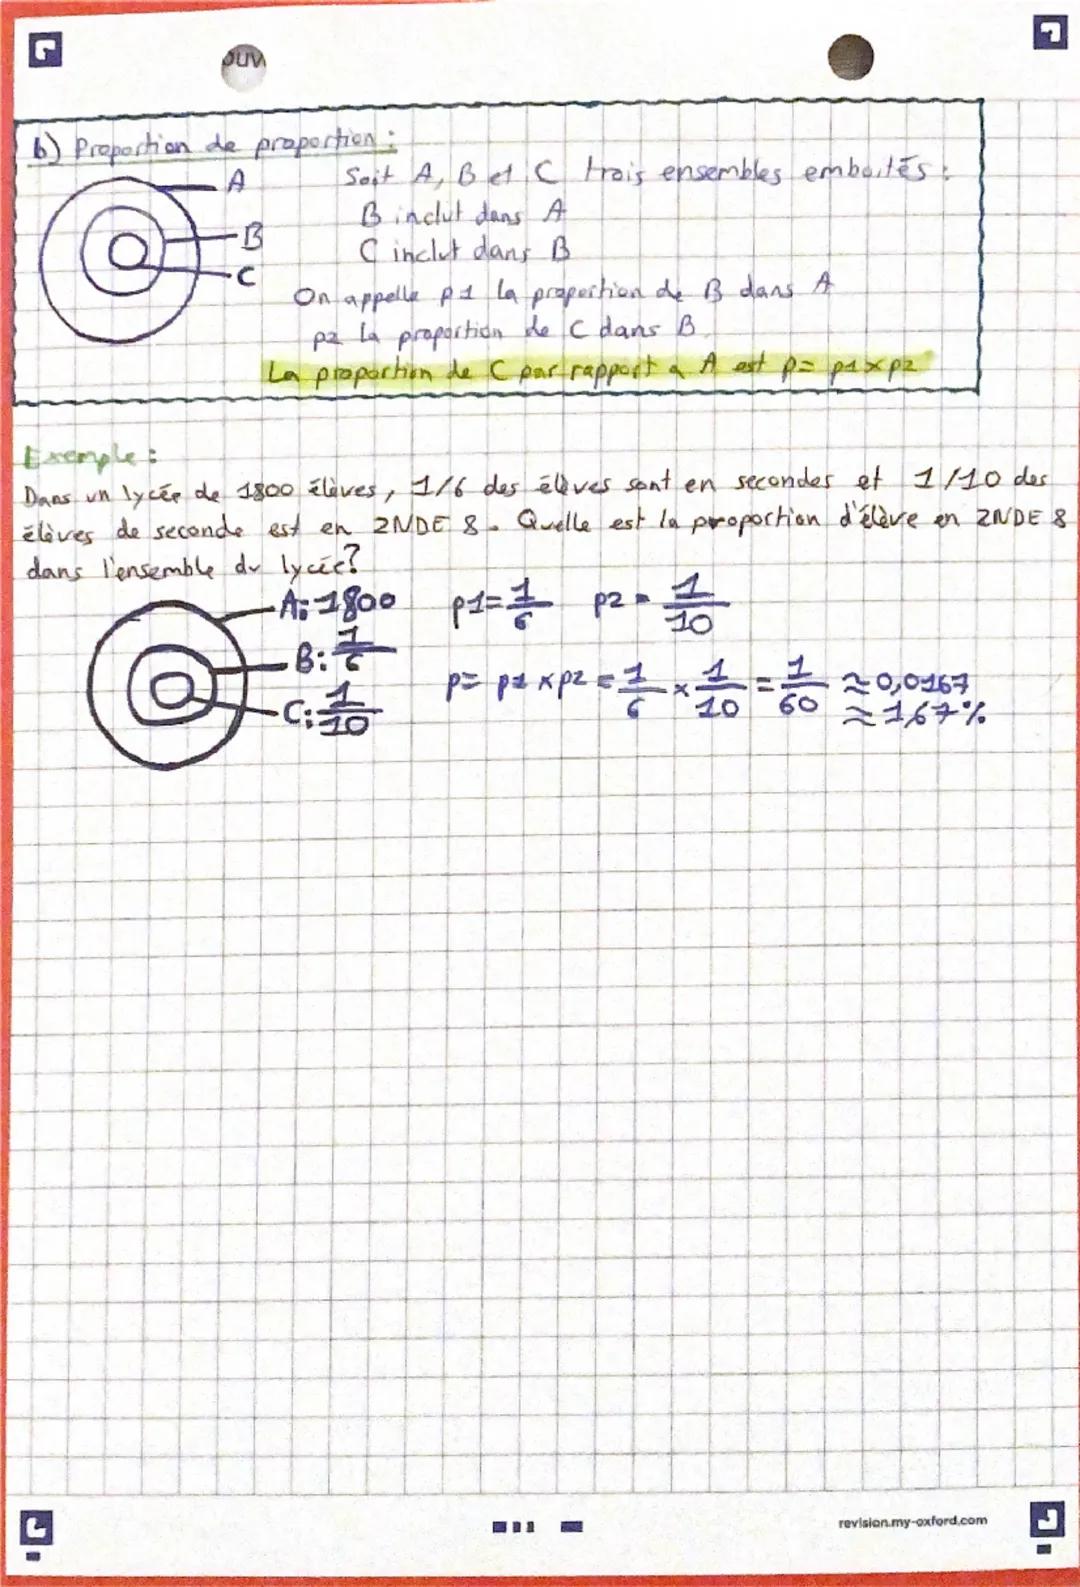 OUV
b) Proportion de proportion :
A
Soit A, B et C trois ensembles emboités :
B inclut dans A
B
C inclut dans B
C
On appelle p1 la proportion de B dans A
p2 la proportion de C dans B.
La proportion de C par rapport a A est p= p1xp2
Exemple :
Dans un lycée de 1800 élèves, 1/6 des élèves sont en secondes et 1/10 des
élèves de seconde est en 2NDE 8. Quelle est la proportion d'élève en 2NDE 8
dans l'ensemble du lycée?
A: 1800 p1= 1/6 p2= 1/10
B: 1/6
p= p1 x p2 = 1/6 x 1/10 = 1/60 ≈ 0,0167
C: 1/10
≈ 1,67%
revision.my-oxford.com